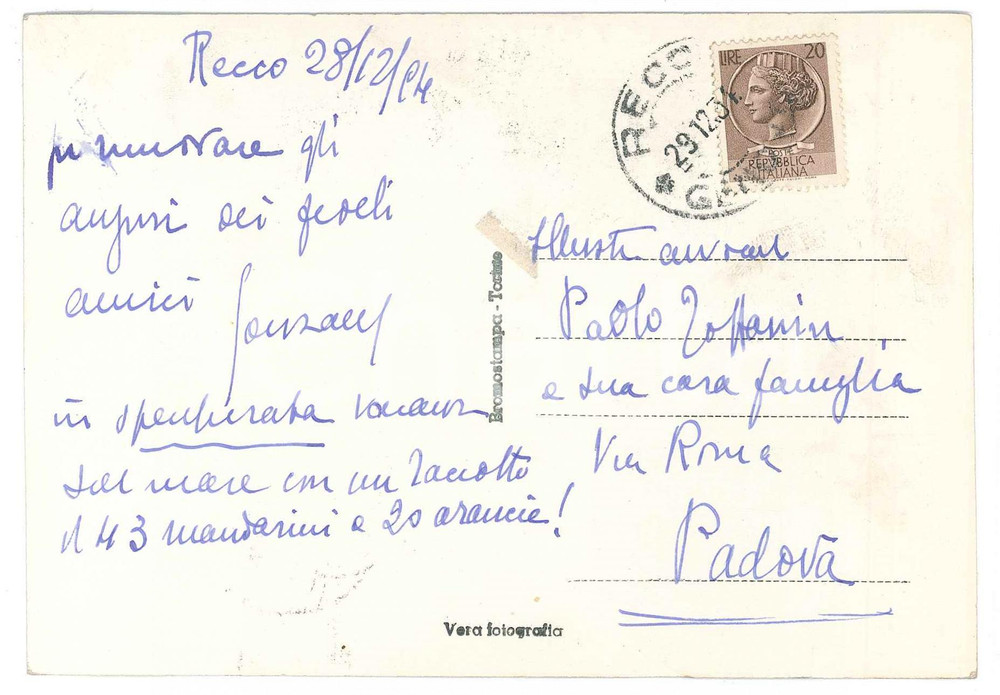 Recco 28/12/54
per rinnovare gli
auguri dei fedeli
amici
in spensierata vacanza
sul mare con un sacchetto
di 43 mandarini e 20 arancie!
Bromostampa - Torino
Vera fotografia
LIRE 20
POSTE
REPVBBLICA
ITALIANA
RECCO
29.12.54
Illustre avvocato
Paolo Toffanin
e sua cara famiglia
Via Roma
Padova